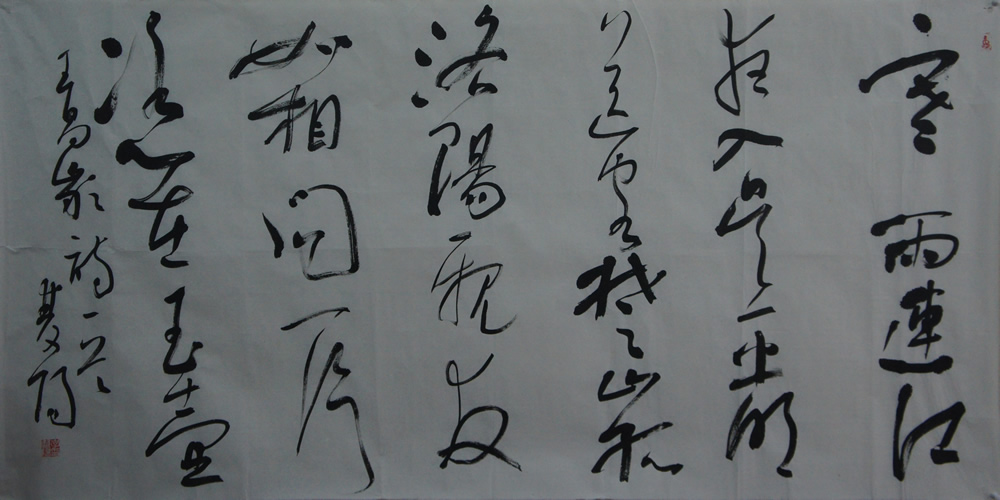 寒雨連江
夜入吳平明
送客楚山孤
洛陽親友
如相問一片
冰心在玉壺
王昌齡詩一首
陽